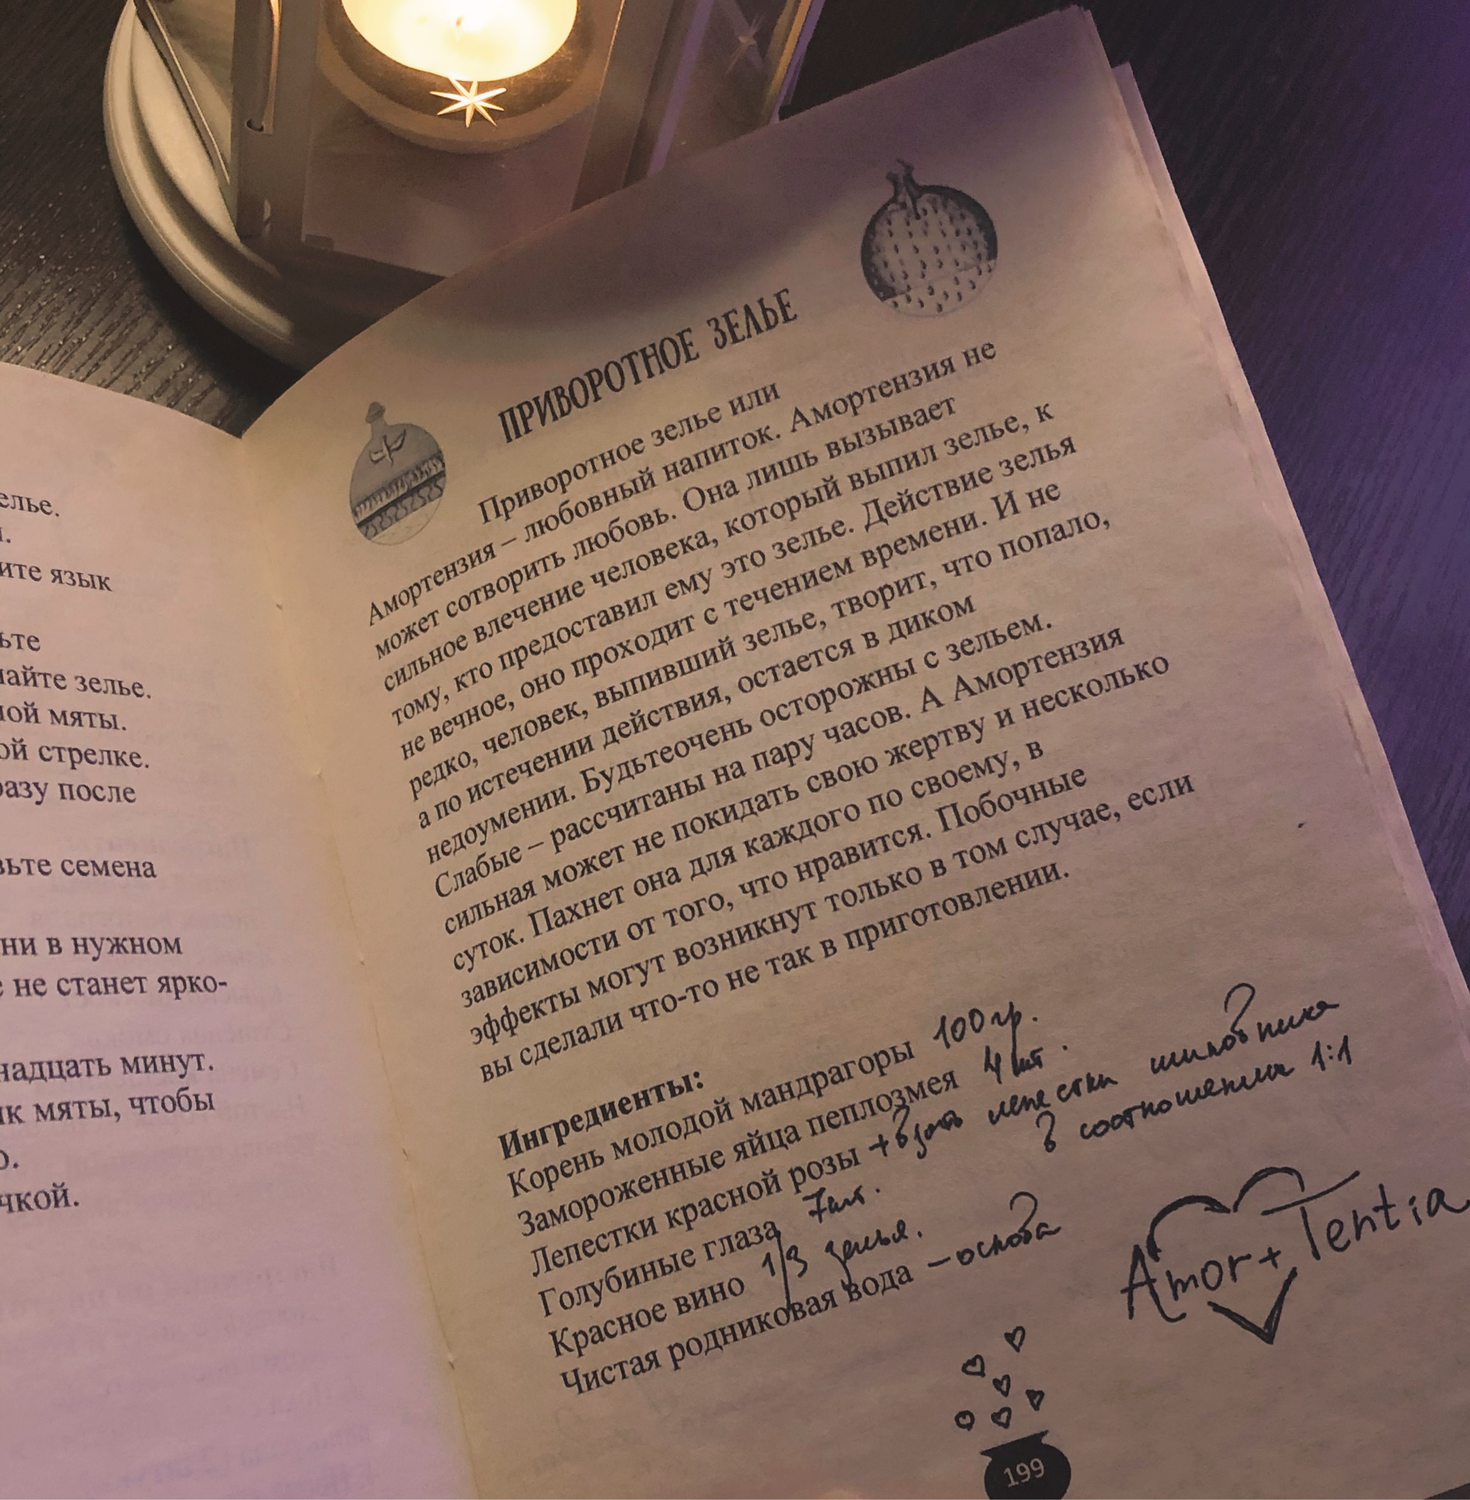 елье.
ите язык
ьте
айте зелье.
ой мяты.
ой стрелке.
разу после
вьте семена
ни в нужном
е не станет ярко-
надцать минут.
ик мяты, чтобы
о.
чкой.
ПРИВОРОТНОЕ ЗЕЛЬЕ
Приворотное зелье или
Амортензия – любовный напиток. Амортензия не
может сотворить любовь. Она лишь вызывает
сильное влечение человека, который выпил зелье, к
тому, кто предоставил ему это зелье. Действие зелья
не вечное, оно проходит с течением времени. И не
редко, человек, выпивший зелье, творит, что попало,
а по истечении действия, остается в диком
недоумении. Будьтеочень осторожны с зельем.
Слабые – рассчитаны на пару часов. А Амортензия
сильная может не покидать свою жертву и несколько
суток. Пахнет она для каждого по своему, в
зависимости от того, что нравится. Побочные
эффекты могут возникнут только в том случае, если
вы сделали что-то не так в приготовлении.
Ингредиенты:
Корень молодой мандрагоры 100 гр.
Замороженные яйца пеплозмея 4 шт.
Лепестки красной розы + взять лепестки шиповника
в соотношении 1:1
Голубиные глаза 7 шт.
Красное вино 1/3 зелья.
Чистая родниковая вода – основа
Amor + Tentia
199